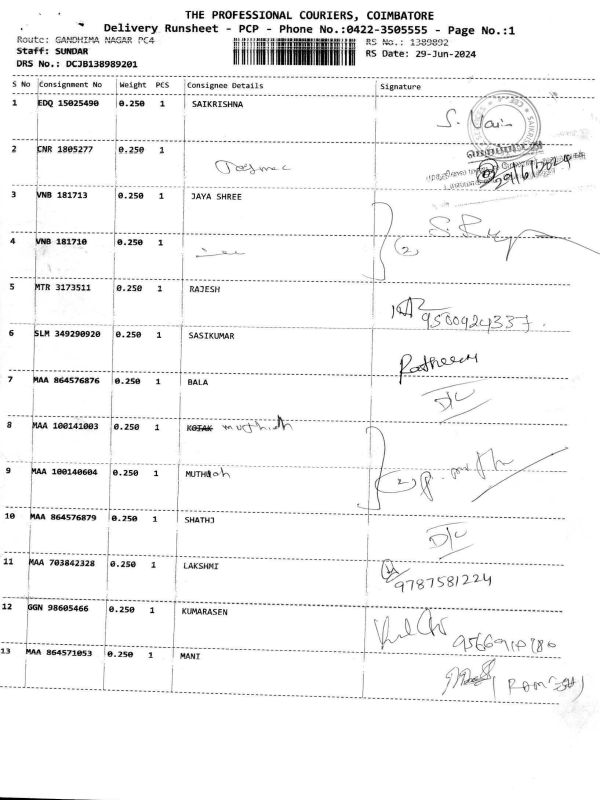 THE PROFESSIONAL COURIERS, COIMBATORE
Delivery Runsheet - PCP - Phone No.:0422-3505555 - Page No.:1
Route: GANDHIMA NAGAR PC4 RS No.: 1389892
Staff: SUNDAR RS Date: 29-Jun-2024
DRS No.: DCJB138989201
S No Consignment No Weight PCS Consignee Details Signature
1 EDQ 15025490 0.250 1 SAIKRISHNA
2 CNR 1805277 0.250 1
29/6/2024
3 VNB 181713 0.250 1 JAYA SHREE
4 VNB 181710 0.250 1 2
5 MTR 3173511 0.250 1 RAJESH
9500924337
6 SLM 349290920 0.250 1 SASIKUMAR
7 MAA 864576876 0.250 1 BALA
D/C
8 MAA 100141003 0.250 1 KOTAK muthiah
9 MAA 100140604 0.250 1 MUTHiah 2
10 MAA 864576879 0.250 1 SHATHJ
D/C
11 MAA 703842328 0.250 1 LAKSHMI
9787581224
12 GGN 98605466 0.250 1 KUMARASEN
13 MAA 864571053 0.250 1 MANI